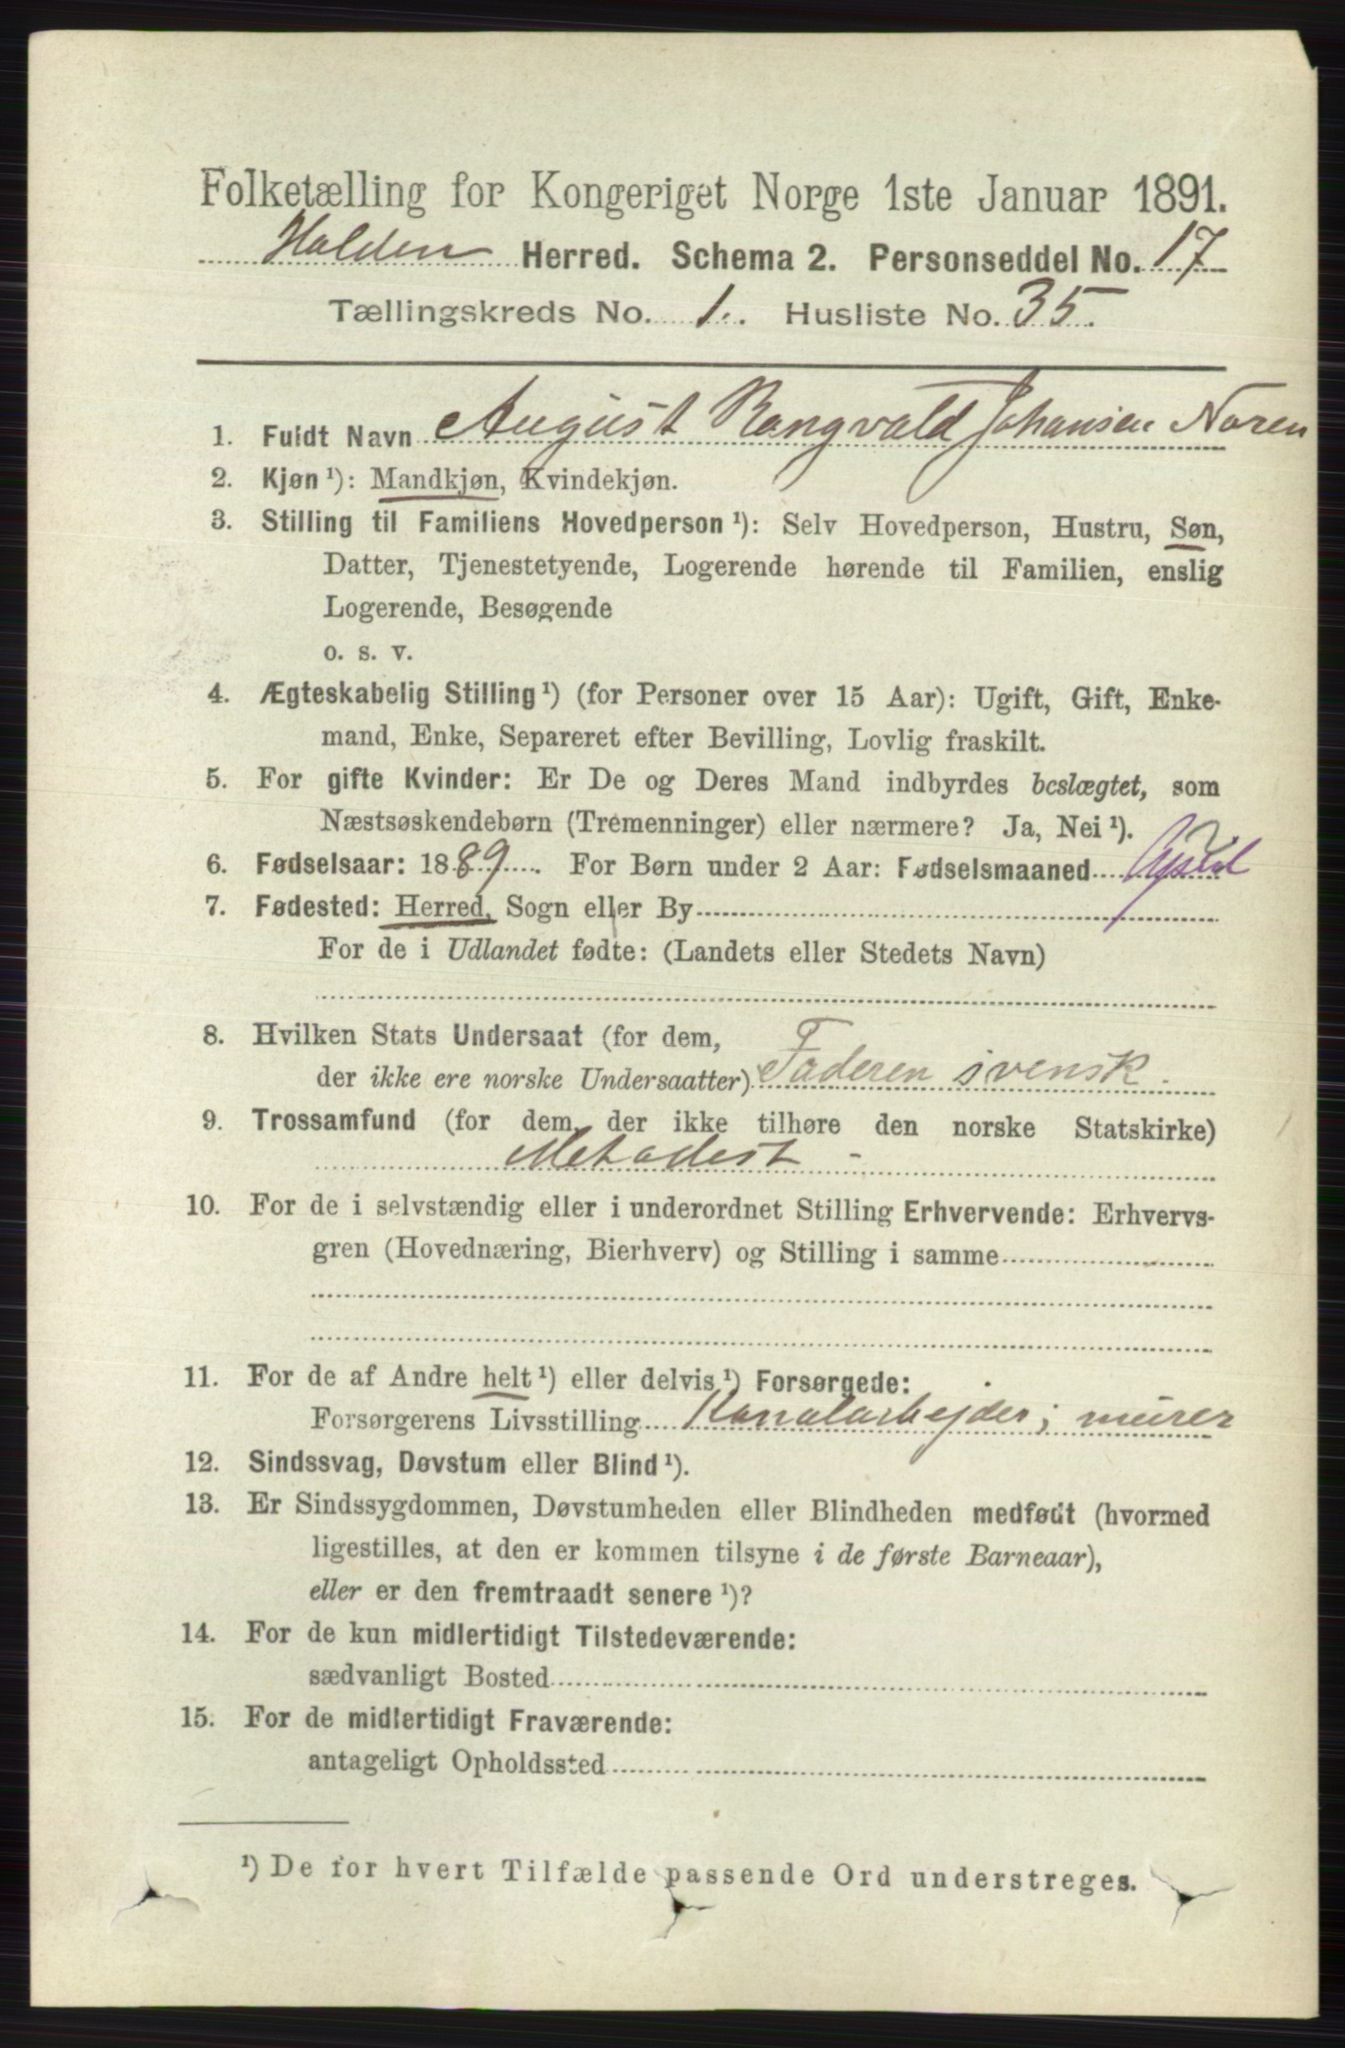 Folketælling for Kongeriget Norge 1ste Januar 1891.
Holden Herred. Schema 2. Personseddel No. 17
Tællingskreds No. 1. Husliste No. 35.
1. Fuldt Navn August Rangvald Johansen Noren
2. Kjøn ¹): Mandkjøn, Kvindekjøn.
3. Stilling til Familiens Hovedperson ¹): Selv Hovedperson, Hustru, Søn,
Datter, Tjenestetyende, Logerende hørende til Familien, enslig
Logerende, Besøgende
o. s. v.
4. Ægteskabelig Stilling ¹) (for Personer over 15 Aar): Ugift, Gift, Enke-
mand, Enke, Separeret efter Bevilling, Lovlig fraskilt.
5. For gifte Kvinder: Er De og Deres Mand indbyrdes beslægtet, som
Næstsøskendebørn (Tremenninger) eller nærmere? Ja, Nei ¹).
6. Fødselsaar: 1889. For Børn under 2 Aar: Fødselsmaaned April
7. Fødested: Herred, Sogn eller By
For de i Udlandet fødte: (Landets eller Stedets Navn)
8. Hvilken Stats Undersaat (for dem,
der ikke ere norske Undersaatter) Faderen svensk.
9. Trossamfund (for dem, der ikke tilhøre den norske Statskirke)
Metodist -
10. For de i selvstændig eller i underordnet Stilling Erhvervende: Erhvervs-
gren (Hovednæring, Bierhverv) og Stilling i samme
11. For de af Andre helt ¹) eller delvis ¹) Forsørgede:
Forsørgerens Livsstilling Kanalarbejder; murer
12. Sindssvag, Døvstum eller Blind ¹).
13. Er Sindssygdommen, Døvstumheden eller Blindheden medfødt (hvormed
ligestilles, at den er kommen tilsyne i de første Barneaar),
eller er den fremtraadt senere ¹)?
14. For de kun midlertidigt Tilstedeværende:
sædvanligt Bosted
15. For de midlertidigt Fraværende:
antageligt Opholdssted
¹) De for hvert Tilfælde passende Ord understreges.